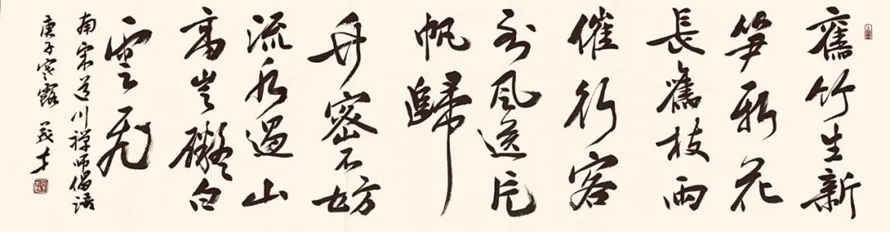 舊竹生新
笋新花
長舊枝雨
催行客
到風送片
帆歸
竹密不妨
流水過山
高豈礙白
雲飛
南宋道川禅師偈語
庚子寒露